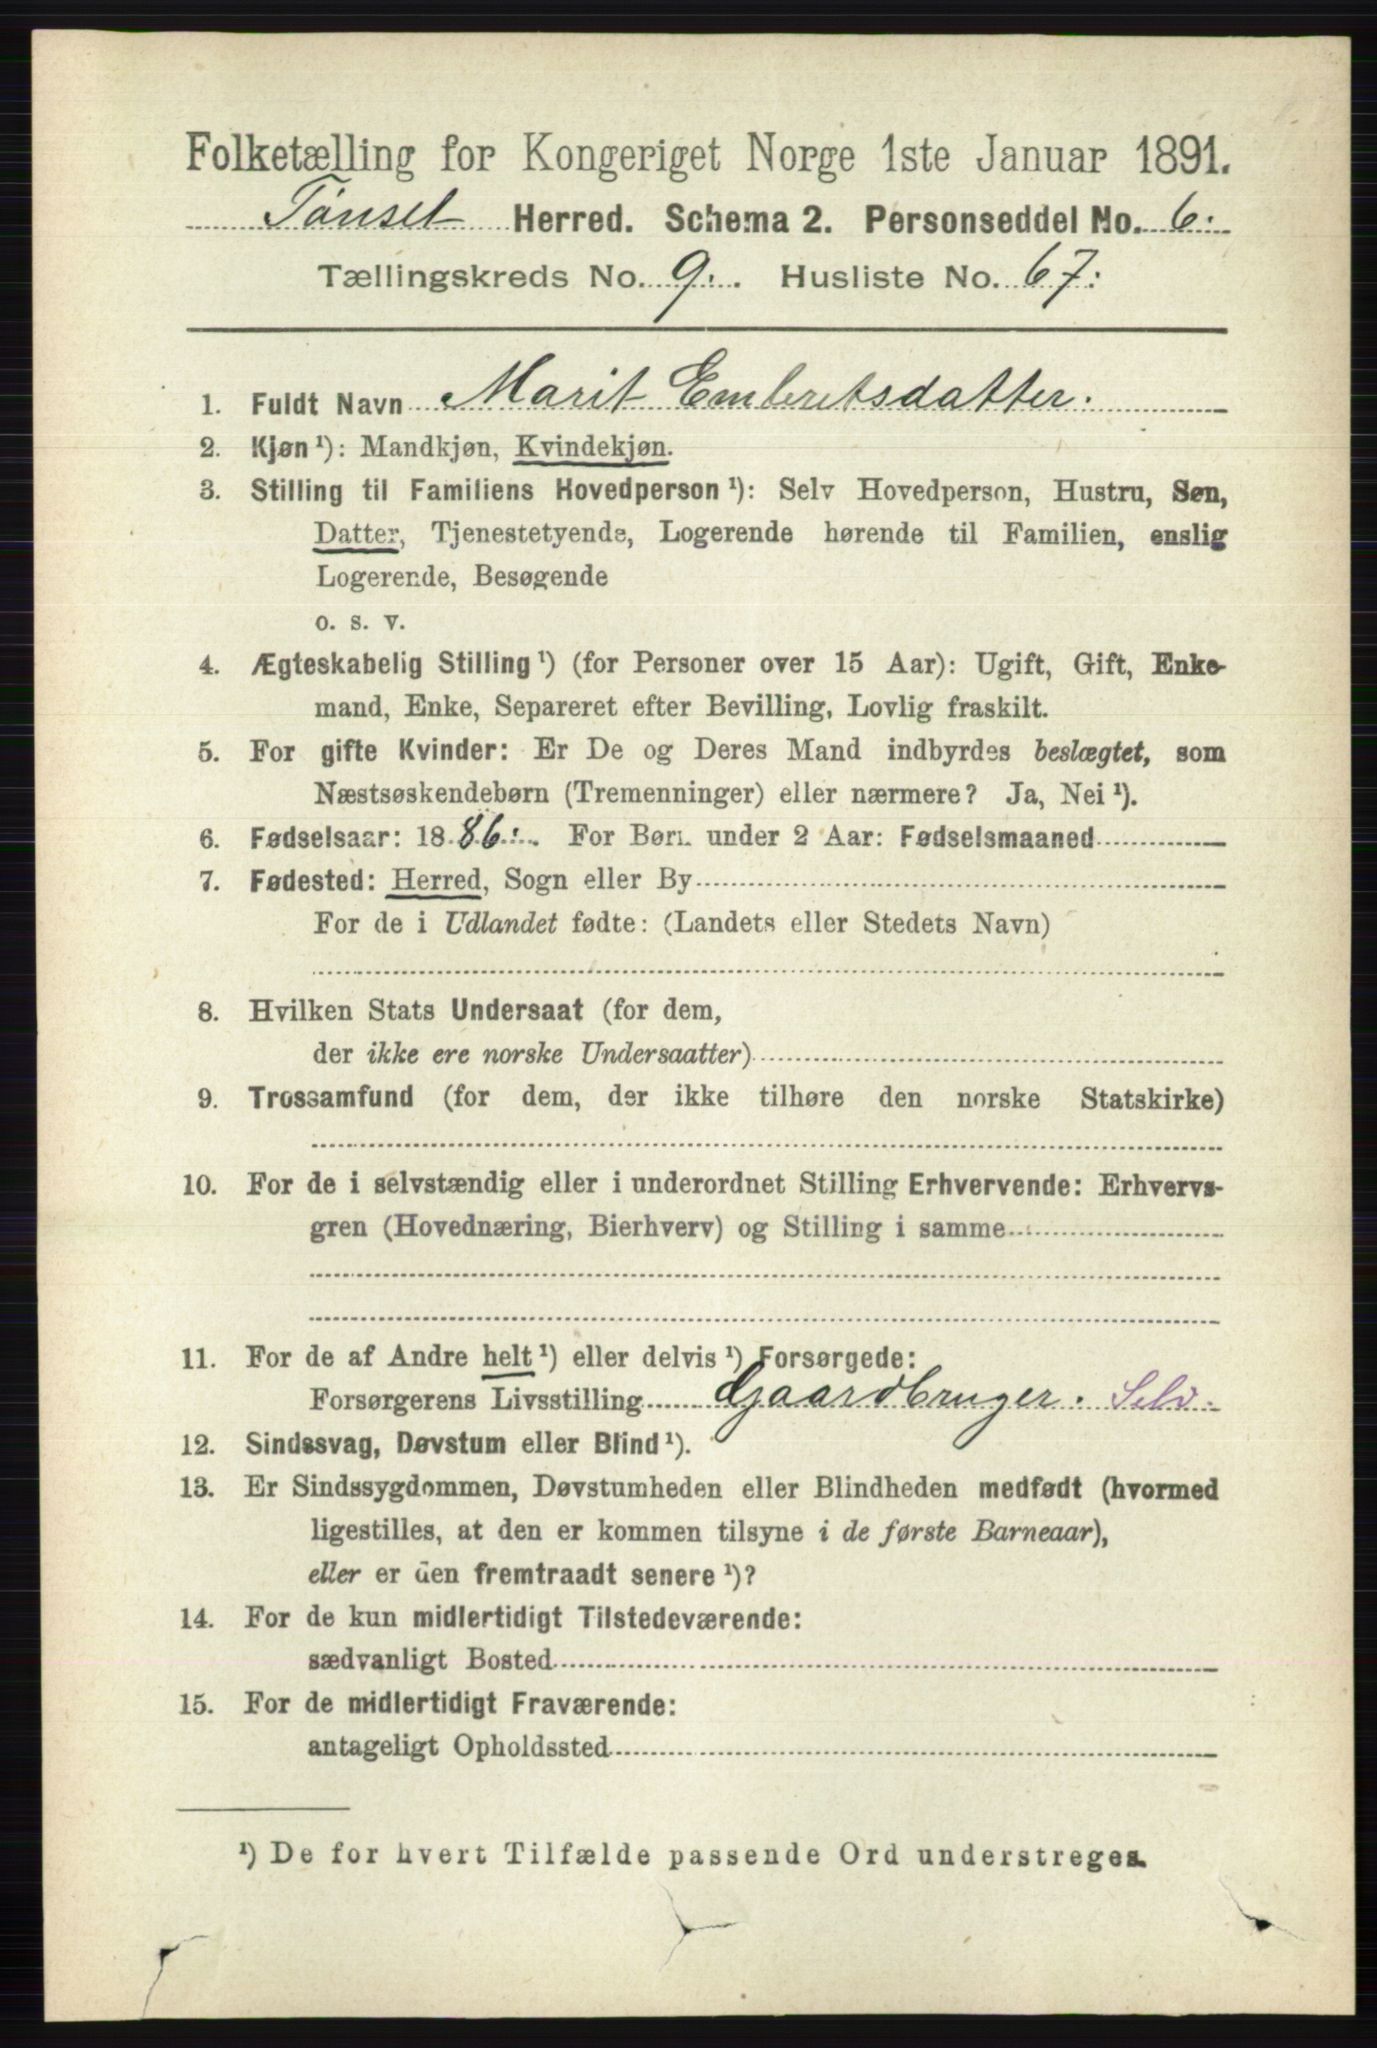 Folketælling for Kongeriget Norge 1ste Januar 1891.
Tønset Herred. Schema 2. Personseddel No. 6.
Tællingskreds No. 9. Husliste No. 67.
1. Fuldt Navn Marit Embretsdatter.
2. Kjøn ¹): Mandkjøn, Kvindekjøn.
3. Stilling til Familiens Hovedperson ¹): Selv Hovedperson, Hustru, Søn,
Datter, Tjenestetyende, Logerende hørende til Familien, enslig
Logerende, Besøgende
o. s. v.
4. Ægteskabelig Stilling ¹) (for Personer over 15 Aar): Ugift, Gift, Enke-
mand, Enke, Separeret efter Bevilling, Lovlig fraskilt.
5. For gifte Kvinder: Er De og Deres Mand indbyrdes beslægtet, som
Næstsøskendebørn (Tremenninger) eller nærmere? Ja, Nei ¹).
6. Fødselsaar: 1886. For Børn under 2 Aar: Fødselsmaaned
7. Fødested: Herred, Sogn eller By
For de i Udlandet fødte: (Landets eller Stedets Navn)
8. Hvilken Stats Undersaat (for dem,
der ikke ere norske Undersaatter)
9. Trossamfund (for dem, der ikke tilhøre den norske Statskirke)
10. For de i selvstændig eller i underordnet Stilling Erhvervende: Erhvervs-
gren (Hovednæring, Bierhverv) og Stilling i samme
11. For de af Andre helt ¹) eller delvis ¹) Forsørgede:
Forsørgerens Livsstilling Gaardbruger. Selv.
12. Sindssvag, Døvstum eller Blind ¹).
13. Er Sindssygdommen, Døvstumheden eller Blindheden medfødt (hvormed
ligestilles, at den er kommen tilsyne i de første Barneaar),
eller er den fremtraadt senere ¹)?
14. For de kun midlertidigt Tilstedeværende:
sædvanligt Bosted
15. For de midlertidigt Fraværende:
antageligt Opholdssted
¹) De for hvert Tilfælde passende Ord understreges.